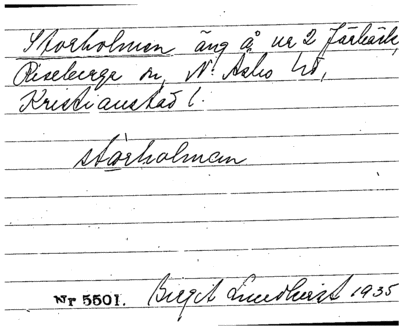 Storholman äng å nr 2 Färbäck,
Riseberga sn, N. Åsbo hd,
Kristianstad l.
storholman
Nr 5501. Birgit Lundkvist 1935